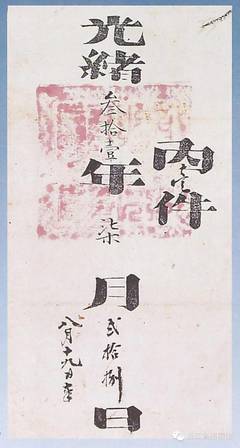 光緒叁拾壹年柒月貳拾捌日
內 件
八月十九日